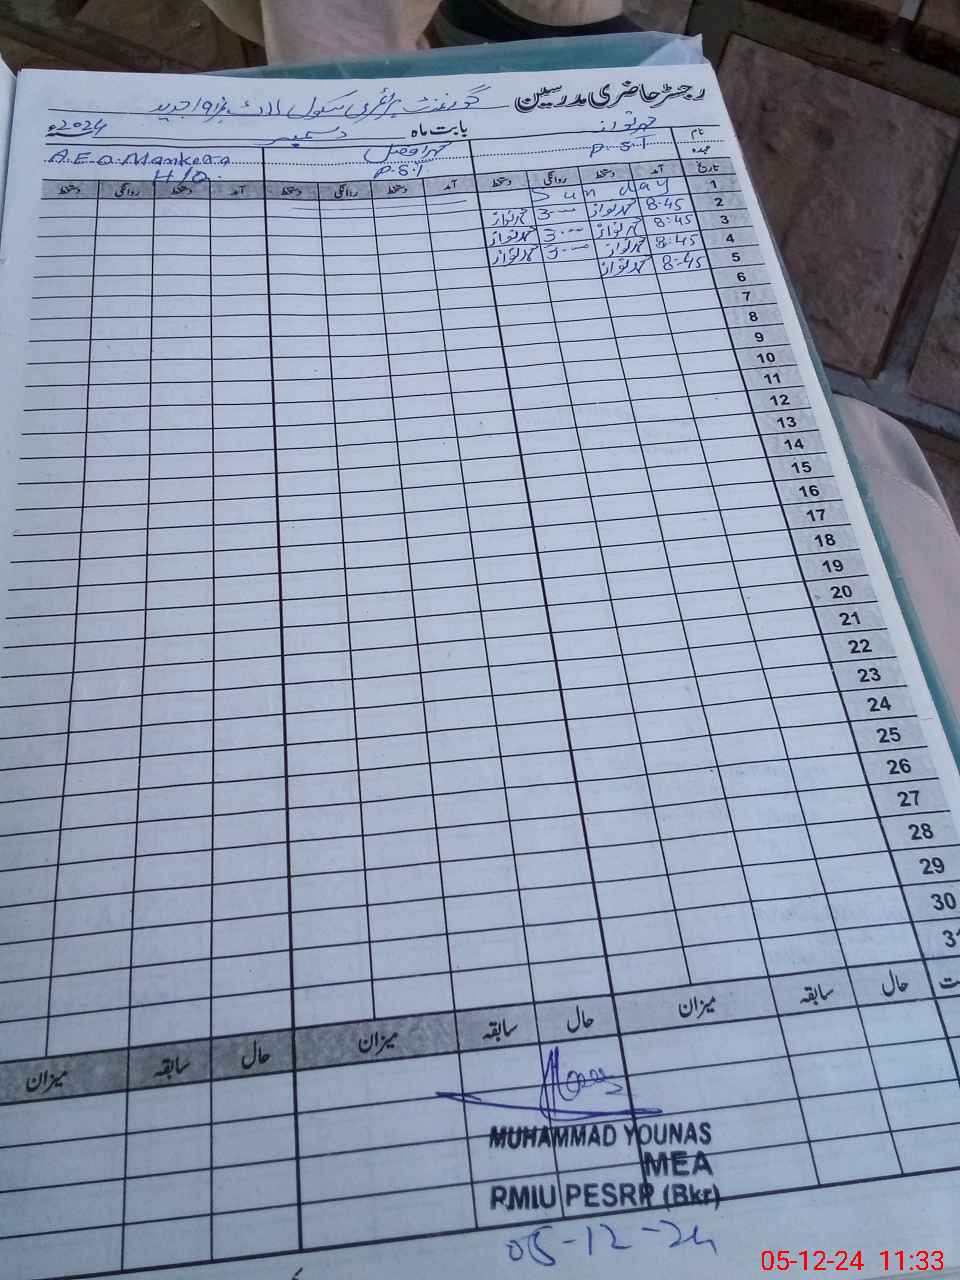 رجسٹر حاضری مدرسین گورنمنٹ پرائمری سکول جدید
بابت ماہ دسمبر 2024ء
نام محمد نواز محمد افضل A.E.O. Mankera
عہدہ P.S.T P.S.T H/Q
تاریخ آمد دستخط روانگی دستخط آمد دستخط روانگی دستخط آمد دستخط روانگی دستخط
1 Sunday
2 8:45 محمد نواز 3:00 محمد نواز
3 8:45 محمد نواز 3:00 محمد نواز
4 8:45 محمد نواز 3:00 محمد نواز
5 8:45 محمد نواز
6
7
8
9
10
11
12
13
14
15
16
17
18
19
20
21
22
23
24
25
26
27
28
29
30
31
حال سابقہ میزان حال سابقہ میزان حال سابقہ میزان
MUHAMMAD YOUNAS
MEA
PMIU PESRP (Bkr)
05-12-24
05-12-24 11:33